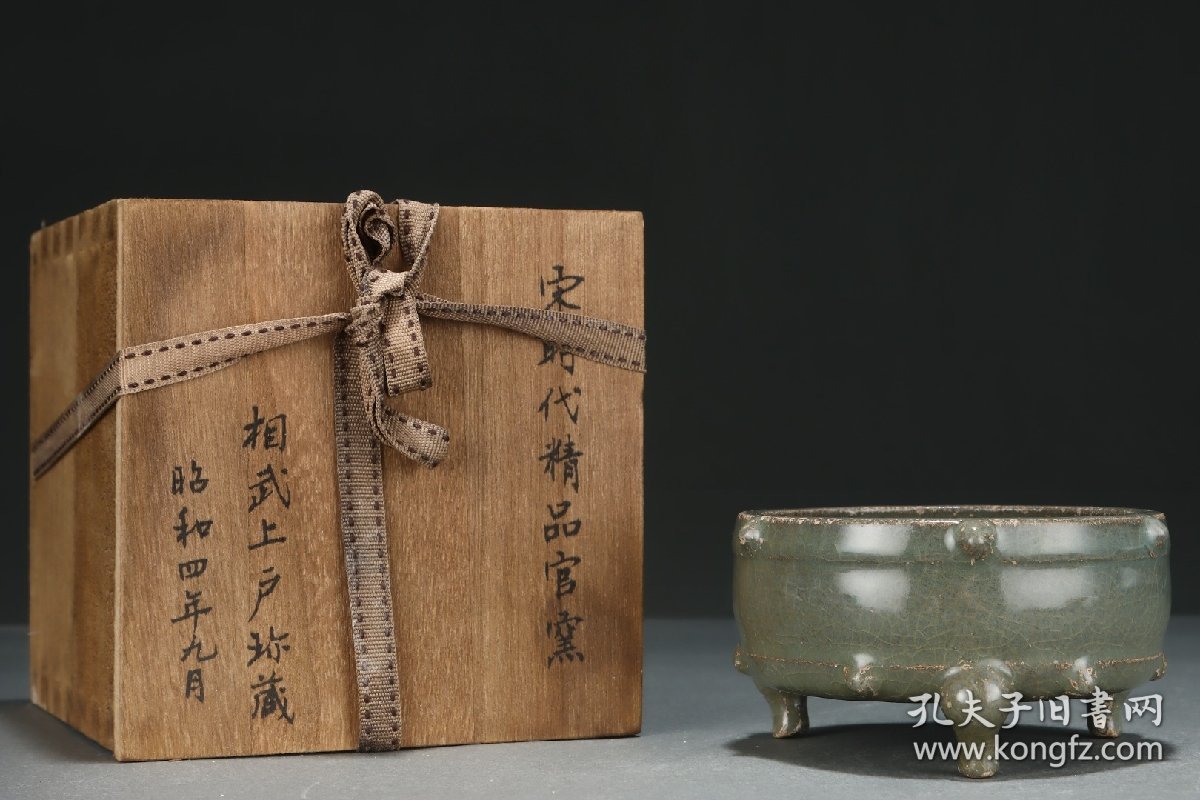 宋時代精品官窯
相武上戸珎蔵
昭和四年九月
孔夫子旧書网
www.kongfz.com